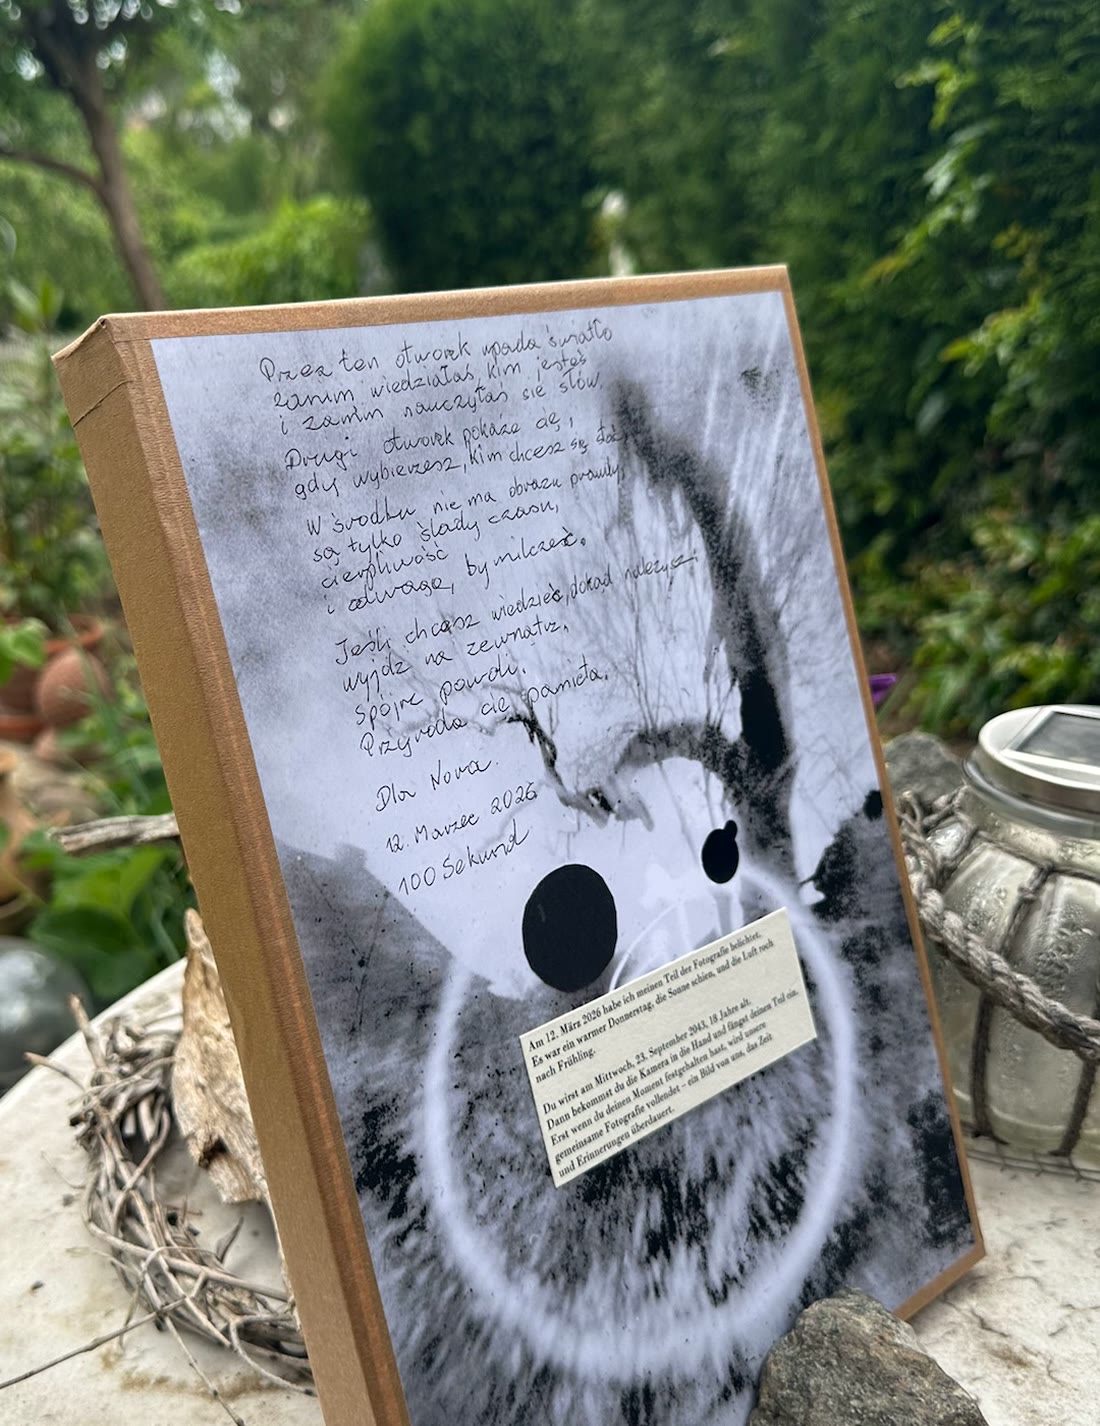 Przez ten otworek wpada światło
zanim wiedziałaś, kim jesteś
i zanim nauczyłaś się słów.
Drugi otworek pokaże cię,
gdy wybierzesz, kim chcesz się stać.
W środku nie ma obrazu prawdy,
są tylko ślady czasu,
cierpliwość
i odwaga, by milczeć.
Jeśli chcesz wiedzieć, dokąd należysz
wyjdź na zewnątrz.
Spójrz powoli.
Przyroda cię pamięta.
Dla Nova.
12. Marzec 2026
100 Sekund
Am 12. März 2026 habe ich meinen Teil der Fotografie belichtet.
Es war ein warmer Donnerstag, die Sonne schien, und die Luft roch
nach Frühling.
Du wirst am Mittwoch, 23. September 2043, 18 Jahre alt.
Dann bekommst du die Kamera in die Hand und fängst deinen Teil ein.
Erst wenn du deinen Moment festgehalten hast, wird unsere
gemeinsame Fotografie vollendet – ein Bild von uns, das Zeit
und Erinnerungen überdauert.